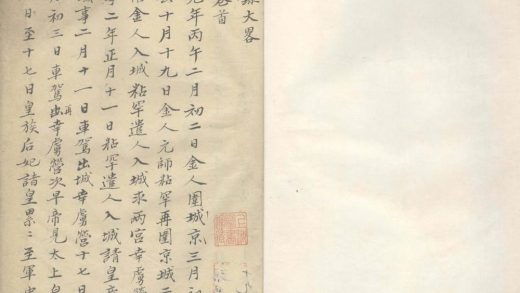 錄大畧
卷首
元年丙午二月初二日金人圍城京三月初
十月十九日金人元帥粘罕再圍京城二
金人入城粘罕遣人入城求兩宮幸虜
二年正月十一日粘罕遣人入城請皇
城事二月十一日車駕出城幸虜營十七日
初三日車駕再出幸虜營次早帝見太上皇
日至十七日皇族后妃諸皇累〻至軍中